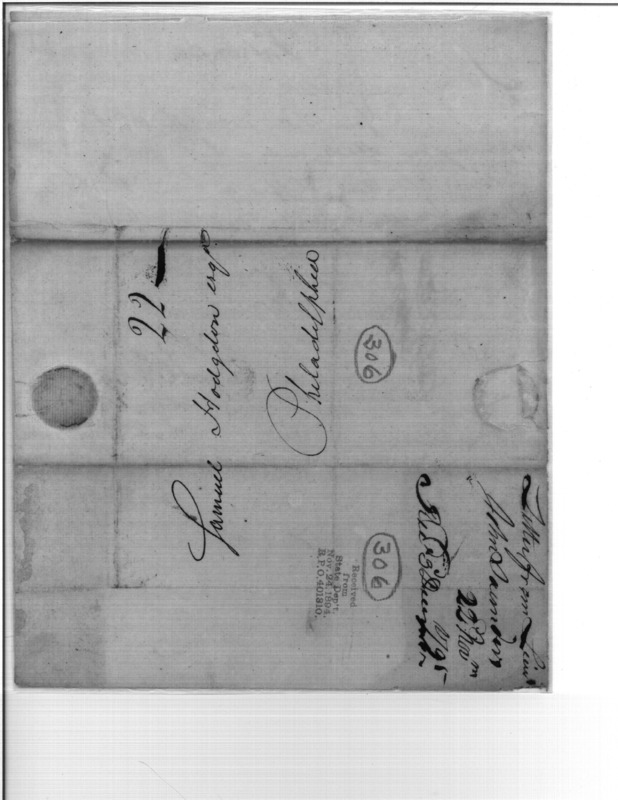 77
Samuel Hodgdon esqr
Philadelphia
306
306
Received
from
State Dep't.
Nov. 24, 1894.
B.F.O. 401810.
Letter from Lieut
John Saunders
22d Nov
1795
Recd December